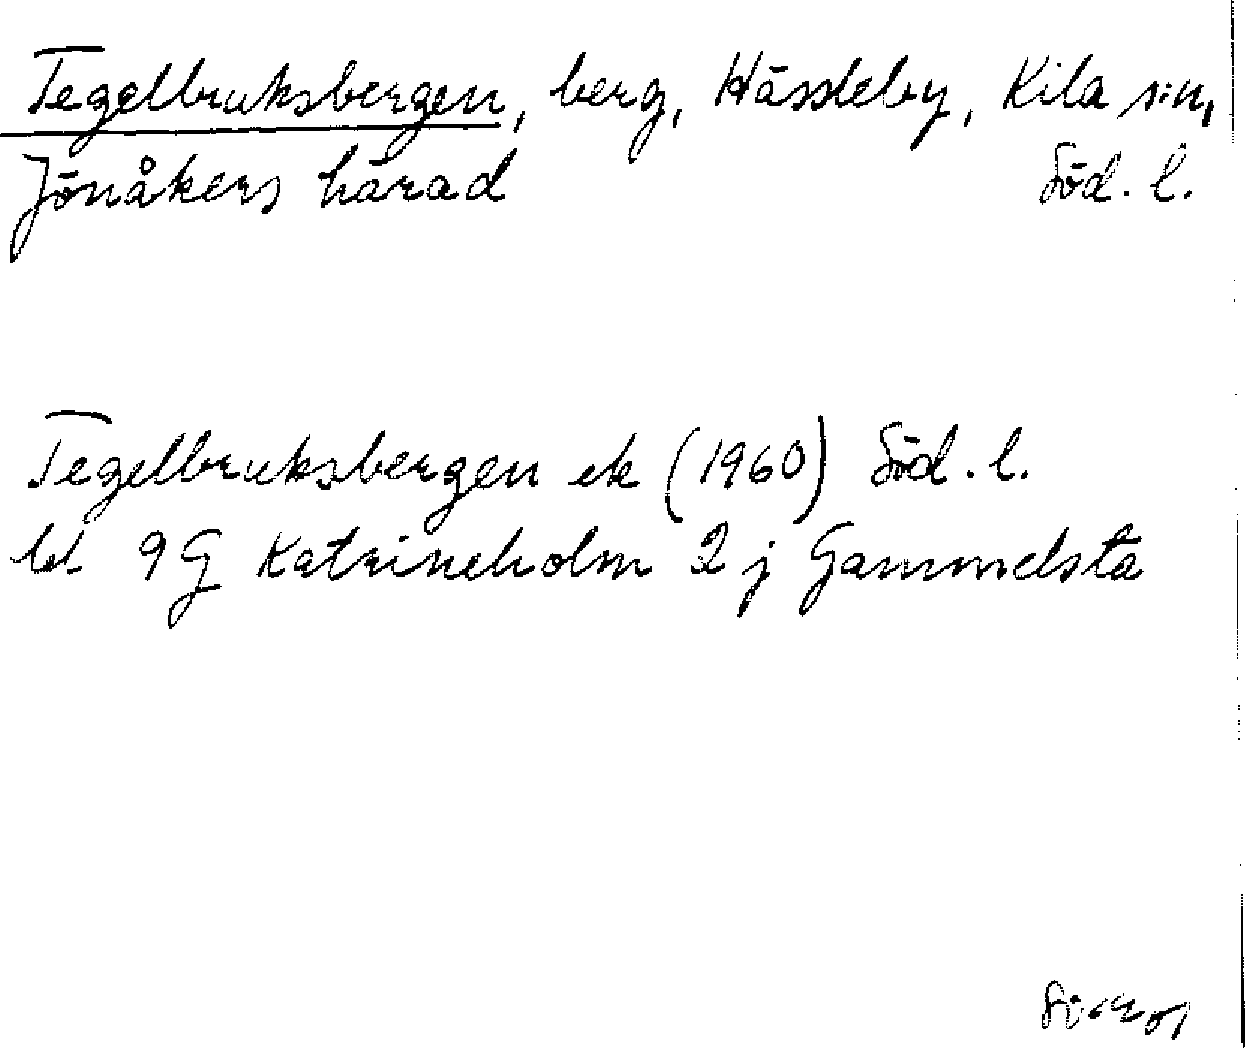 Tegelbruksbergen, berg, Hässleby, Kila sn,
Jönåkers härad Söd. l.
Tegelbruksbergen ek (1960) Söd. l.
bl. 9G Katrineholm 2 j Gammelsta